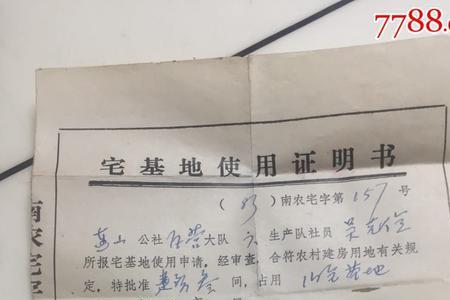 7788.c
宅基地使用证明书
(83)南农宅字第157号
山公社 大队 六 生产队社员
所报宅基地使用申请,经审查,合符农村建房用地有关规
定,特批准 建 叁 间,占用 地
南农宅